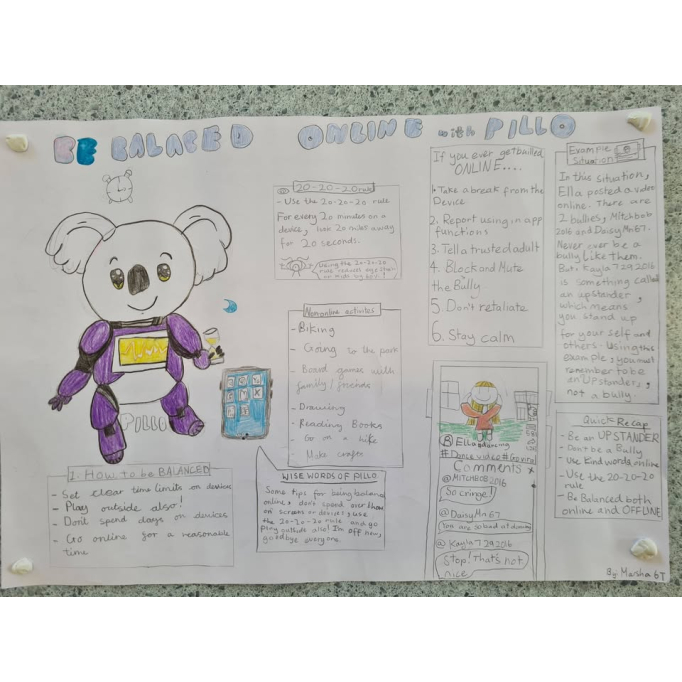 BE BALACED ONLINE with PILLO
PILLO
1. HOW to be BALANCED
- Set clear time limits on devices
- Play outside also!
- Dont spend days on devices
- Go online for a reasonable
time
20-20-20 rule
- Use the 20-20-20 rule
For every 20 minutes on a
device, look 20 away
for 20 seconds.
Using the 20-20-20
rule reduces eye
Non online
- Biking
- Going to the park
- Board games with
family/friends
- Drawing
- Reading Books
- Go on a hike
- Make
WISE WORDS OF PILLO
Some tips for being balanced
online, don't spend over
on screens or devices, use
the 20-20-20 rule and go
play outside also! I'm off now,
goodbye everyone.
If you ever get
ONLINE....
1. Take a break from the
Device
2. Report using in app
functions
3. Tell a trusted adult
4. Block and Mute
the Bully
5. Don't retaliate
6. Stay calm
Ella dancing
# Dance video #
Comments x
@MITCHBOB2016
So cringe!
@DaisyMn67
You are so bad at dancing
@Kayla7292016
Stop! That's not
nice
Example
Situation
In this situation,
Ella posted a video
online. There are
2 bullies, Mitchbob
2016 and DaisyMn67.
Never ever be a
bully like them.
But, Kayla7292016
is something called
an upstander,
which means
you stand up
for your self and
others. Using this
example, you must
remember to be
an Upstander,
not a bully.
Quick Recap
- Be an UPSTANDER
- Don't be a Bully
- Use Kind words online
- Use the 20-20-20
rule
- Be Balanced both
online and OFFLINE
By: Marsha 6T